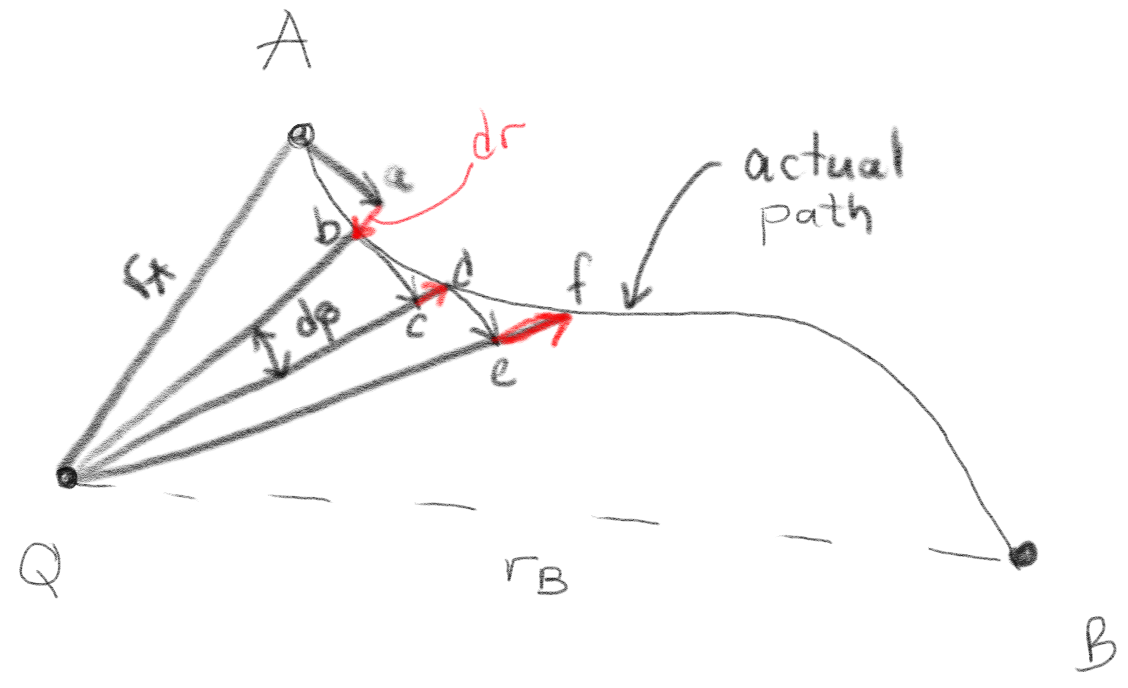 A
dr
a
actual
path
b
d
f
r_A
dφ
c
e
Q
r_B
B